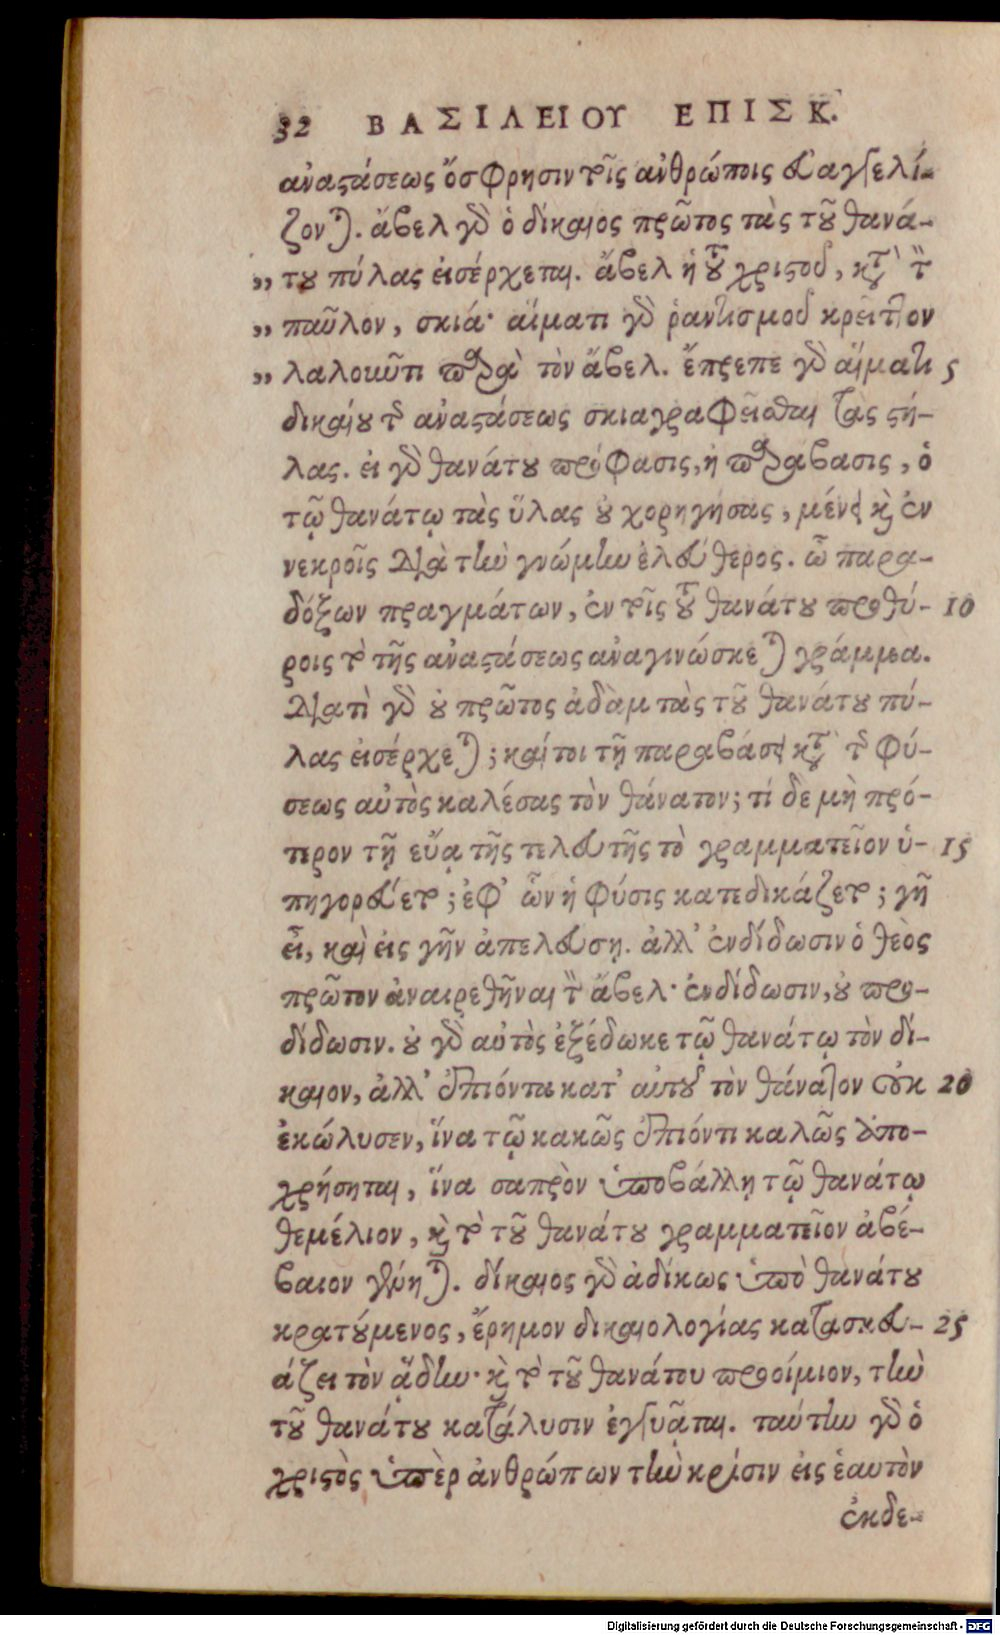 32 ΒΑΣΙΛΕΙΟΥ ΕΠΙΣΚ.
ἀναστάσεως ὄσφρησιν τοῖς ἀνθρώποις εὐαγγελί-
ζονται. ἄβελ γὰρ ὁ δίκαιος πρῶτος τὰς τοῦ θανά-
„ του πύλας εἰσέρχεται. ἄβελ ἡ τοῦ χριστοῦ, κατὰ τὸν
„ παῦλον, σκιά· αἵματι γὰρ ῥαντισμοῦ κρεῖττον
„ λαλοῦντι παρὰ τὸν ἄβελ. ἔπρεπε γὰρ αἵματι 5
δικαίου τῆς ἀναστάσεως σκιαγραφεῖσθαι τὰς στή-
λας. εἰ γὰρ θανάτου πρόφασις, ἡ παράβασις, ὁ
τῷ θανάτῳ τὰς ὕλας οὐ χορηγήσας, μένει καὶ ἐν
νεκροῖς διὰ τὴν γνώμην ἐλεύθερος. ὢ παρα-
δόξων πραγμάτων, ἐν τοῖς τοῦ θανάτου προθύ- 10
ροις τὸ τῆς ἀναστάσεως ἀναγινώσκεται γράμμα.
Διατὶ γὰρ οὐ πρῶτος ἀδὰμ τὰς τοῦ θανάτου πύ-
λας εἰσέρχεται; καίτοι τῇ παραβάσει κατὰ τῆς φύ-
σεως αὐτὸς καλέσας τὸν θάνατον; τί δὲ μὴ πρό-
τερον τῇ εὔᾳ τῆς τελευτῆς τὸ γραμματεῖον ὑ- 15
πηγορεύετο; ἐφ' ὧν ἡ φύσις κατεδικάζετο; γῆ
εἶ, καὶ εἰς γῆν ἀπελεύσῃ. ἀλλ' ἐνδίδωσιν ὁ θεὸς
πρῶτον ἀναιρεθῆναι τὸν ἄβελ· ἐνδίδωσιν, οὐ προ-
δίδωσιν. οὐ γὰρ αὐτὸς ἐξέδωκε τῷ θανάτῳ τὸν δί-
καιον, ἀλλ' ἐπιόντα κατ' αὐτοῦ τὸν θάνατον οὐκ 20
ἐκώλυσεν, ἵνα τῷ κακῶς ἐπιόντι καλῶς ἀπο-
χρήσηται, ἵνα σαπρὸν ὑποβάλλῃ τῷ θανάτῳ
θεμέλιον, καὶ τὸ τοῦ θανάτου γραμματεῖον ἀβέ-
βαιον γένηται. δίκαιος γὰρ ἀδίκως ὑπὸ θανάτου
κρατούμενος, ἔρημον δικαιολογίας κατασκευ- 25
άζει τὸν ᾅδην· καὶ τὸ τοῦ θανάτου προοίμιον, τὴν
τοῦ θανάτου κατάλυσιν ἐγγυᾶται. ταύτην γὰρ ὁ
χριστὸς ὑπὲρ ἀνθρώπων τὴν κρίσιν εἰς ἑαυτὸν
ἐκδε-
Digitalisierung gefördert durch die Deutsche Forschungsgemeinschaft - DFG